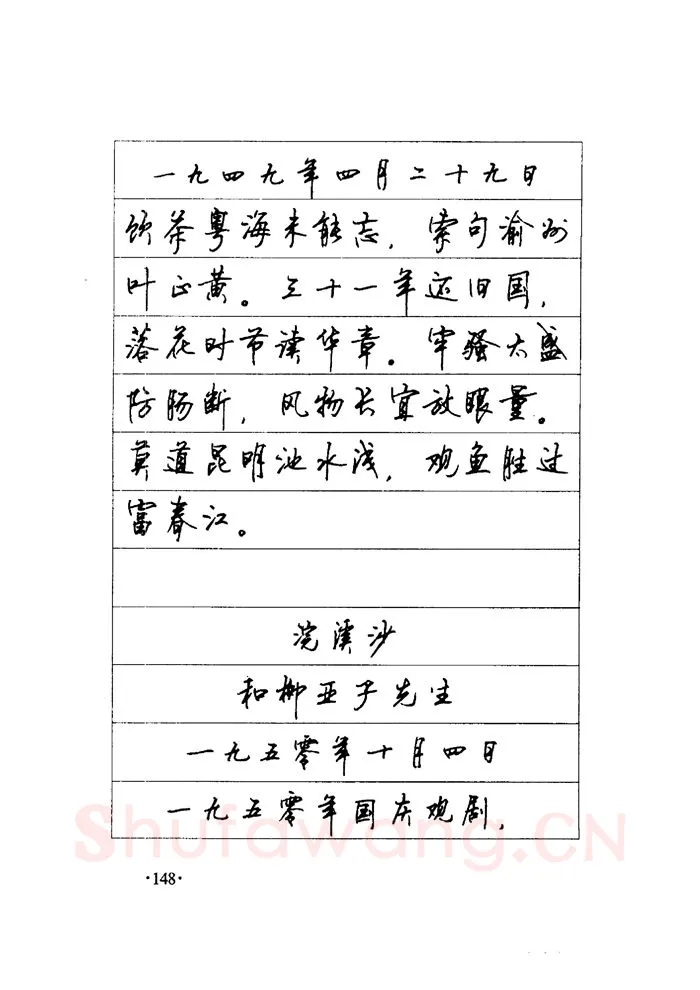 一九四九年四月二十九日
饮茶粤海未能忘，索句渝州
叶正黄。三十一年还旧国，
落花时节读华章。牢骚太盛
防肠断，风物长宜放眼量。
莫道昆明池水浅，观鱼胜过
富春江。
浣溪沙
和柳亚子先生
一九五零年十月四日
一九五零年国庆观剧，
Shufawang.CN
·148·